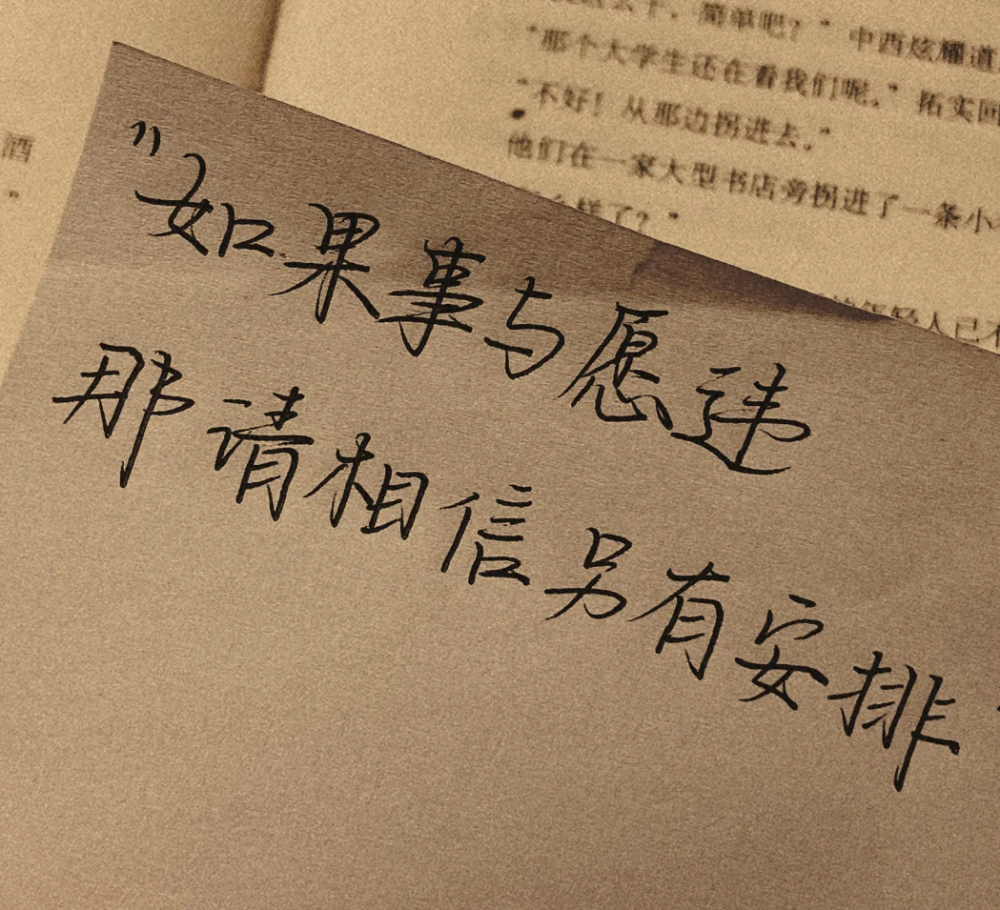 简单吧？”中西炫耀道
“那个大学生还在看我们呢。”拓实回
“不好！从那边拐进去。”
他们在一家大型书店旁拐进了一条小
么样了？”
年轻人已不
酒
”
"如果事与愿违
那请相信另有安排